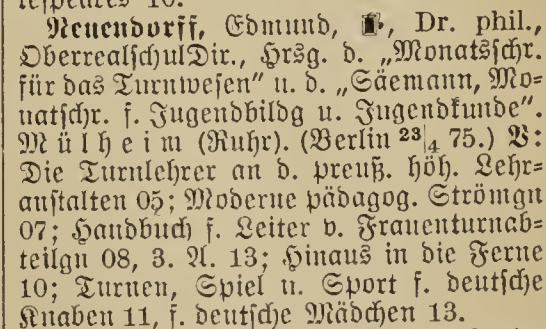 Neuendorff, Edmund, Dr. phil.,
OberrealschulDir., Hrsg. d. „Monatsschr.
für das Turnwesen" u. d. „Säemann, Mo-
natschr. f. Jugendbildg u. Jugendkunde".
Mülheim (Ruhr). (Berlin 23|4 75.) V:
Die Turnlehrer an d. preuß. höh. Lehr-
anstalten 05; Moderne pädagog. Strömgn
07; Handbuch f. Leiter v. Frauenturnab-
teilgn 08, 3. A. 13; Hinaus in die Ferne
10; Turnen, Spiel u. Sport f. deutsche
Knaben 11, f. deutsche Mädchen 13.